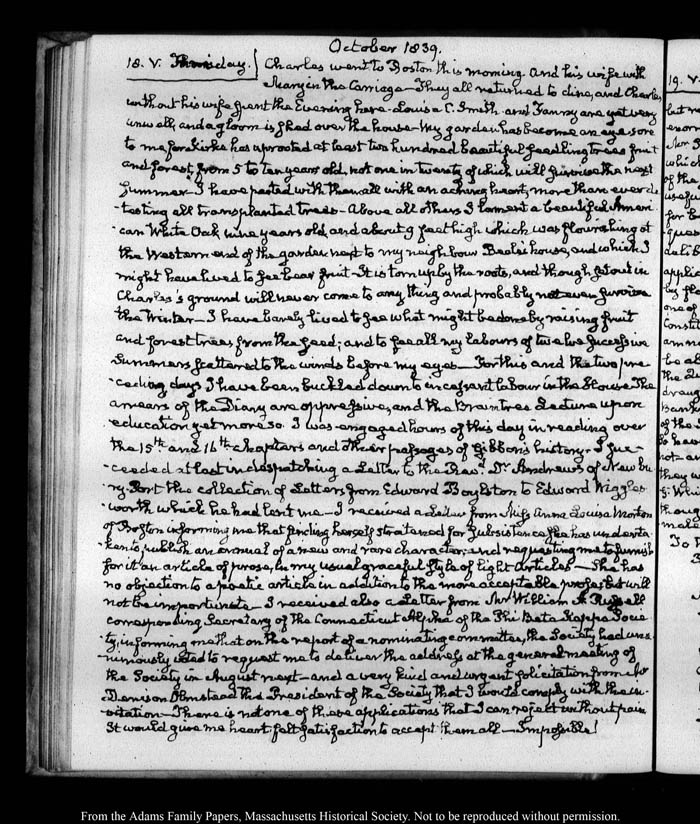 October 1839.
18. V. Thursday.} Charles went to Boston this morning and his wife with
Mary in the Carriage – They all returned to dine, and Charles
without his wife spent the Evening here. Louisa C. Smith and Fanny are yet very
unwell, and a gloom is shed over the house – My garden has become an eye sore
to me for Kirke has uprooted at least two hundred beautiful seedling trees fruit
and forest, from 5 to ten years old, not one in twenty of which will survive the next
Summer – I have parted with them all with an aching heart, more than ever de-
-testing all transplanted trees – Above all others I lament a beautiful Ameri-
-can White Oak nine years old, and about 9 feet high which was flourishing at
the Western end of the garden next to my neighbour Beale's house, and which I
might have lived to see bear fruit – It is torn up by the roots, and though set out in
Charles's ground will never come to any thing and probably not even survive
the Winter – I have barely lived to see what might be done by raising fruit
and forest trees from the seed; and to see all my labours of twelve successive
Summers scattered to the winds before my eyes – For this and the two pre-
-ceding days I have been buckled down to incessant labour in the House. The
arrears of the Diary are oppressive, and the Braintree Lecture upon
education yet more so. I was engaged hours of this day in reading over
the 15th. and 16th. chapters and other passages of Gibbon's history. I suc-
-ceeded at last in despatching a Letter to the Revd. Dr. Andrews of New bu-
ry-Port the collection of Letters from Edward Boylston to Edward Wiggles-
worth which he had lent me – I received a Letter from Miss Anna Louisa Morton
of Boston informing me that finding herself straitened for subsistence she has underta-
-ken to publish an annual of a new and rare character; and requesting me to furnish
for it an article of prose, in my usual graceful style of light articles – She has
no objection to a poetic article in addition to the more acceptable prose, but will
not be importunate – I received also a Letter from Mr William H. Russell
corresponding Secretary of the Connecticut Alpha of the Phi Beta Kappa Socie-
ty, informing me that on the report of a nominating committee, the Society had una-
nimously voted to request me to deliver the address at the general meeting of
the Society in August next – and a very kind and urgent solicitation from Mr
Denison Olmstead the President of the Society that I would comply with the in-
-vitation – There is not one of these applications that I can reject without pain
It would give me heart felt satisfaction to accept them all – Impossible!
19. V.
of the
usefu
for
applic
by
one of
Constit
be
the
of the
not
they
To
From the Adams Family Papers, Massachusetts Historical Society. Not to be reproduced without permission.